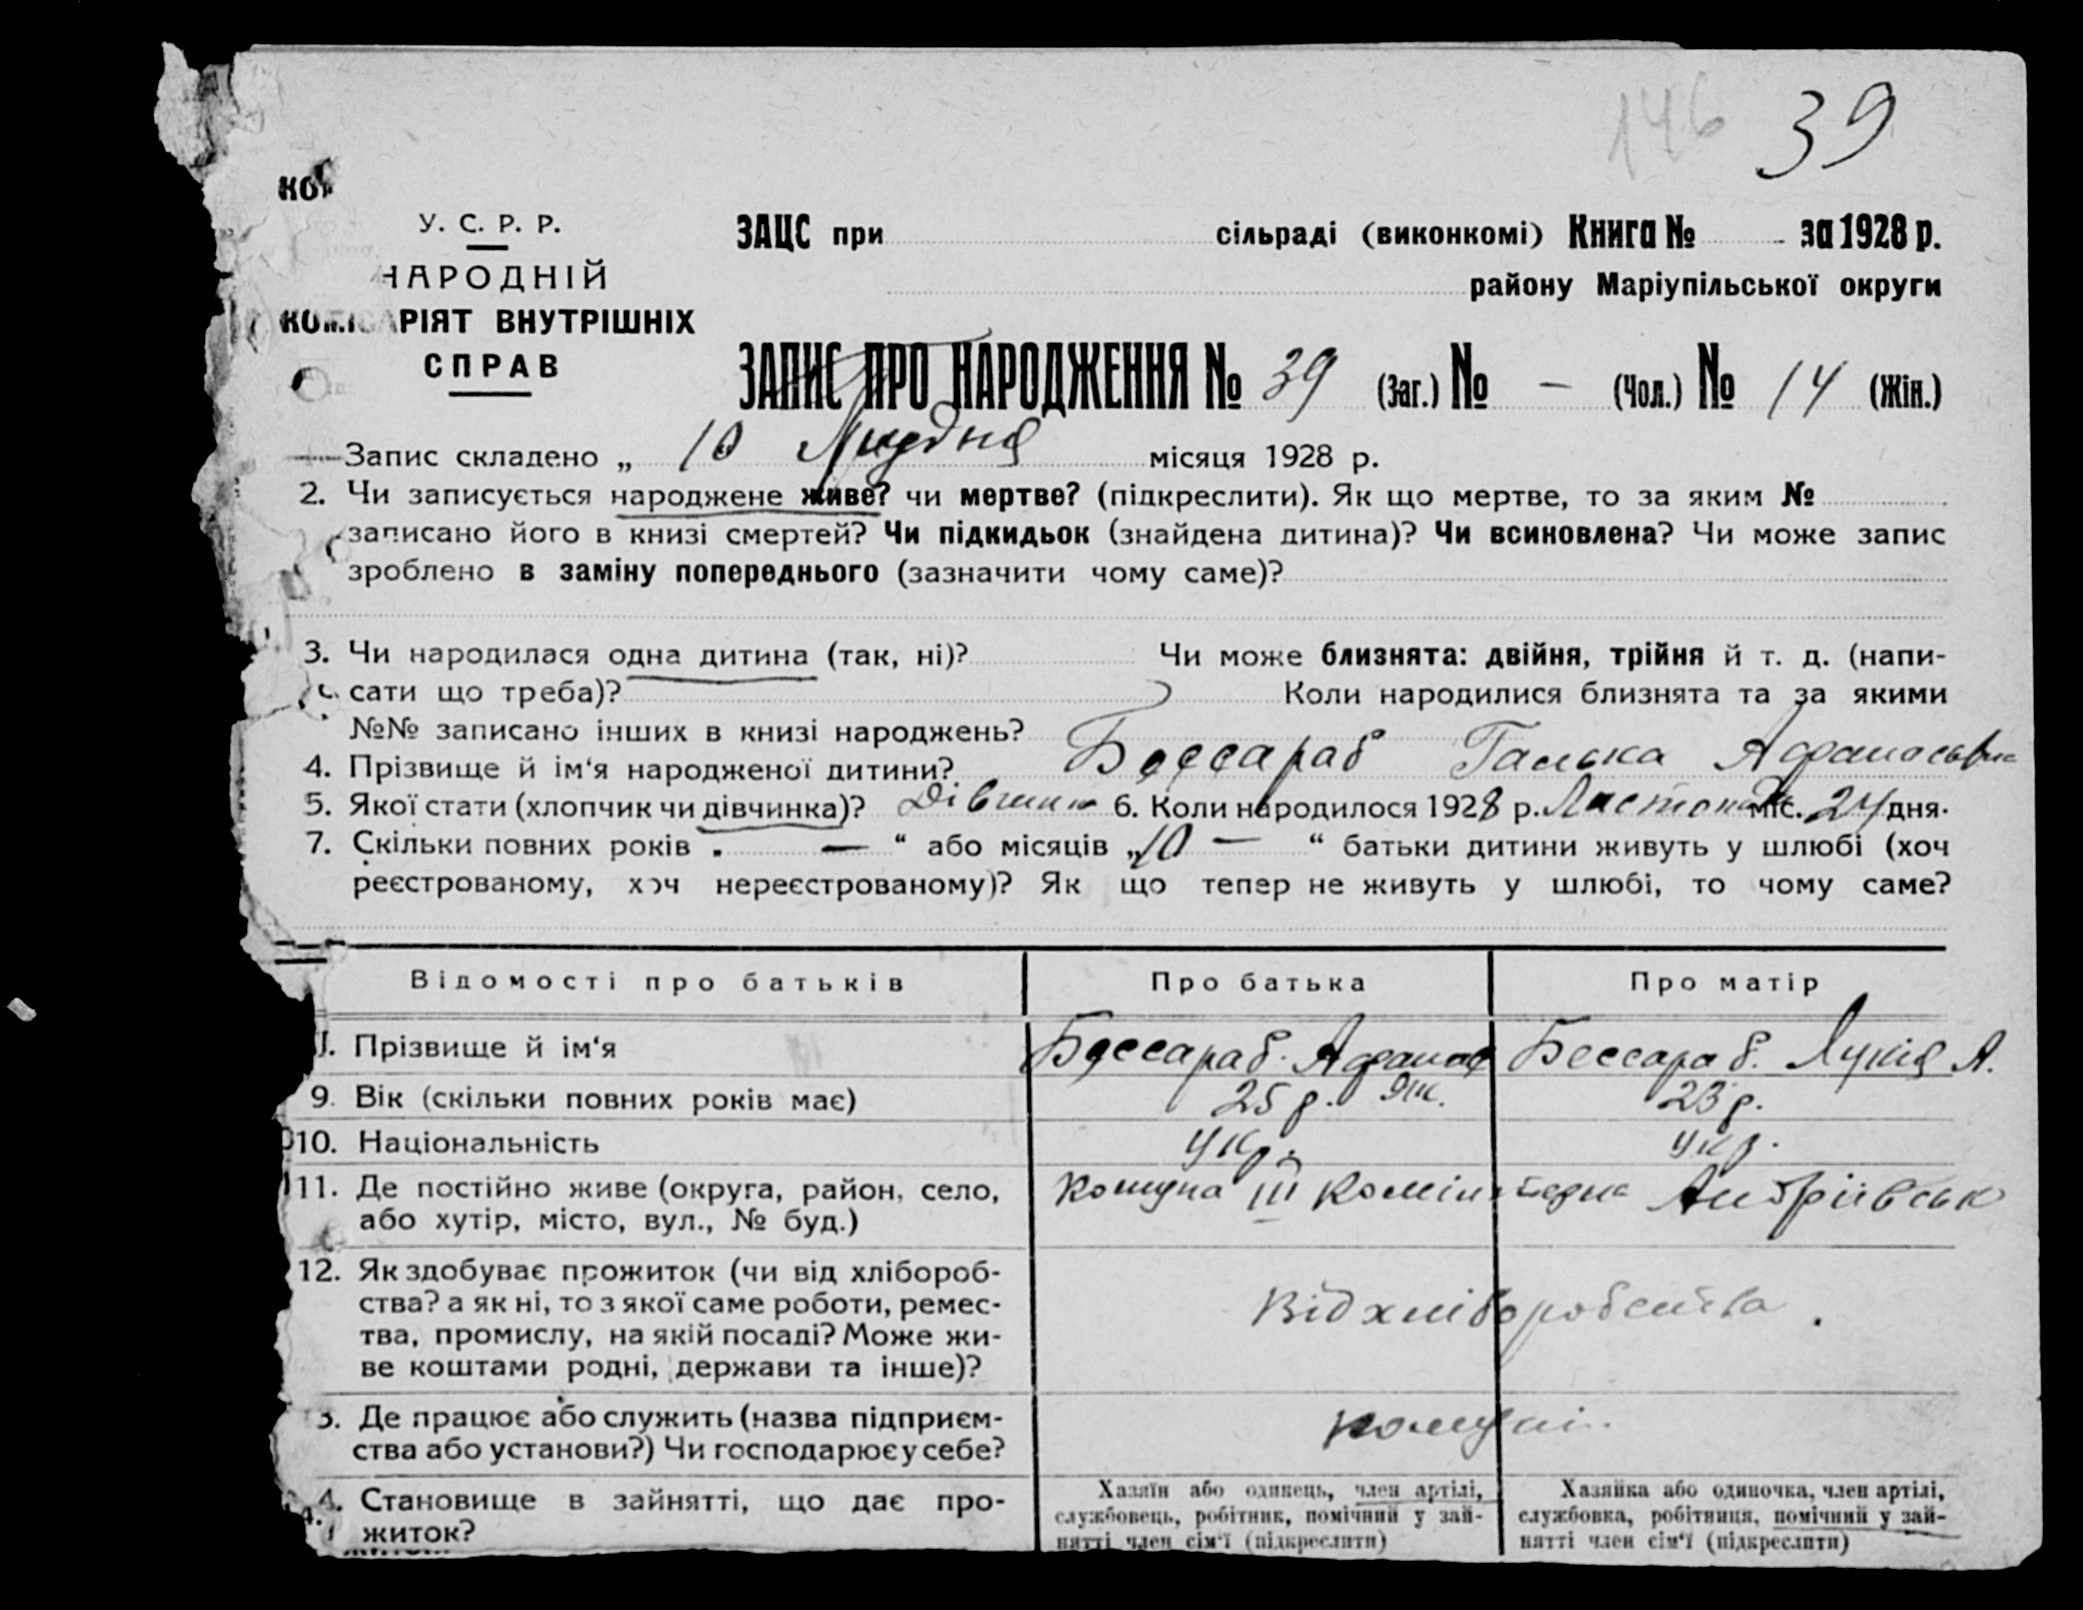 146 39
У. С. Р. Р.
НАРОДНІЙ
КОМІСАРІЯТ ВНУТРІШНІХ
СПРАВ
ЗАЦС при сільраді (виконкомі) Книга № за 1928 р.
району Маріупільської округи
ЗАПИС ПРО НАРОДЖЕННЯ № 39 (Заг.) № — (Чол.) № 14 (Жін.)
Запис складено „ 10 Грудня місяця 1928 р.
2. Чи записується народжене живе? чи мертве? (підкреслити). Як що мертве, то за яким №
записано його в книзі смертей? Чи підкидьок (знайдена дитина)? Чи всиновлена? Чи може запис
зроблено в заміну попереднього (зазначити чому саме)?
3. Чи народилася одна дитина (так, ні)? Чи може близнята: двійня, трійня й т. д. (напи-
сати що треба)? Коли народилися близнята та за якими
№№ записано інших в книзі народжень?
4. Прізвище й ім‘я народженої дитини? Бессараб Галька Афанасьевна
5. Якої стати (хлопчик чи дівчинка)? Дівчинк 6. Коли народилося 1928 р. Листопада міс. 24 дня.
7. Скільки повних років . — “ або місяців „10 — “ батьки дитини живуть у шлюбі (хоч
реєстрованому, хоч нереєстрованому)? Як що тепер не живуть у шлюбі, то чому саме?
Відомості про батьків Про батька Про матір
Прізвище й ім‘я Бессараб Афанас Бессараб Лукія А.
9. Вік (скільки повних років має) 25 р. 23 р.
10. Національність Укр. Укр.
11. Де постійно живе (округа, район, село, Комуна III Комін Андріївськ
або хутір, місто, вул., № буд.)
12. Як здобуває прожиток (чи від хлібороб-
ства? а як ні, то з якої саме роботи, ремес-
тва, промислу, на якій посаді? Може жи-
ве коштами родні, держави та інше)?
Від хліборобства.
3. Де працює або служить (назва підприєм-
ства або установи?) Чи господарює у себе?
комуні
4. Становище в зайнятті, що дає про-
житок?
Хазяїн або одинець, член артілі,
службовець, робітник, помічний у зай-
нятті член сім‘ї (підкреслити)
Хазяйка або одиночка, член артілі,
службовка, робітниця, помічний у зай-
нятті член сім‘ї (підкреслити)